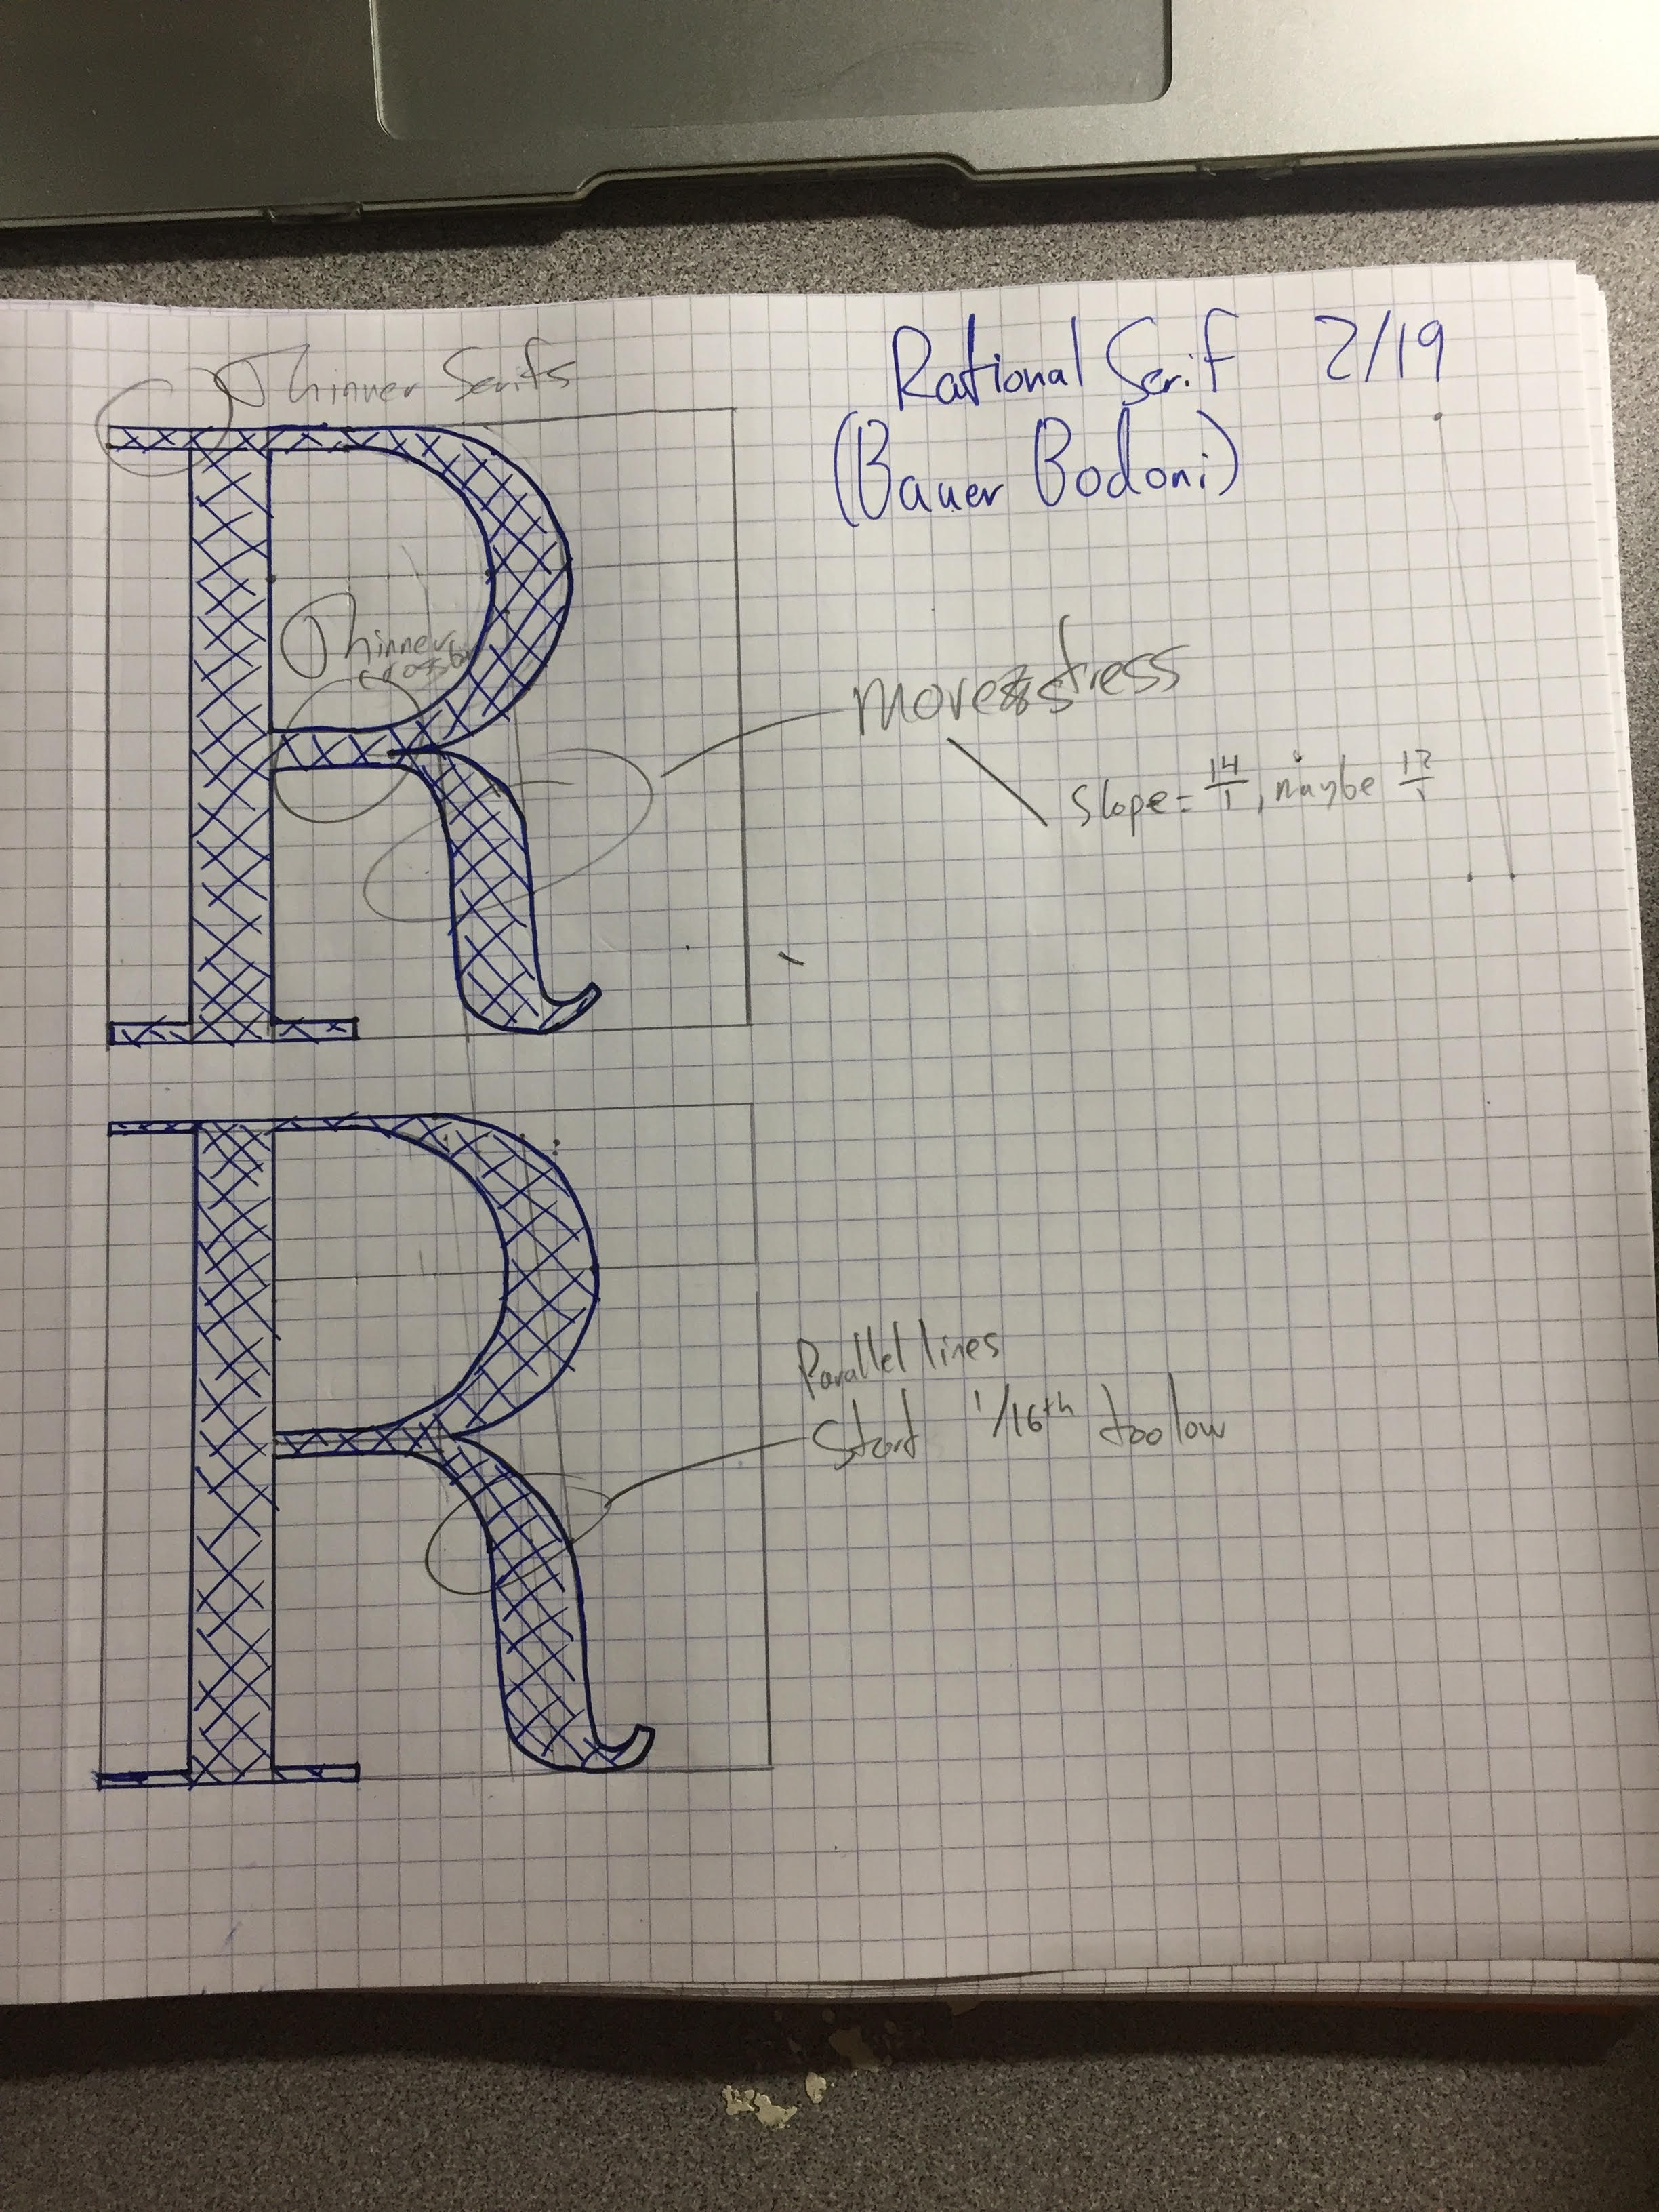 Rational Serif 2/19
(Bauer Bodoni)
Thinner Serifs
Thinner
crossbar
more stress
Slope = 14/1, maybe 12/1
Parallel lines
Start 1/16th too low